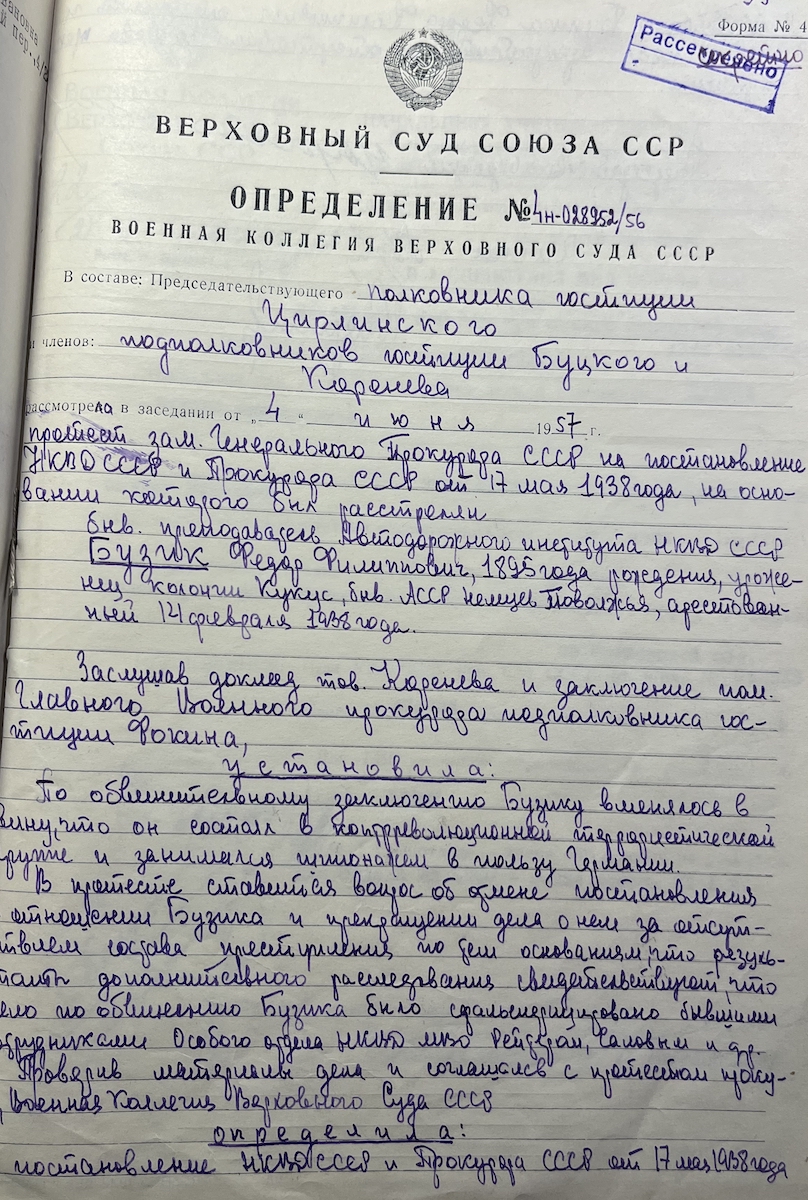 Форма № 4
Рассекречено
ВЕРХОВНЫЙ СУД СОЮЗА ССР
ОПРЕДЕЛЕНИЕ №4н-028952/56
ВОЕННАЯ КОЛЛЕГИЯ ВЕРХОВНОГО СУДА СССР
В составе: Председательствующего полковника юстиции
Цирлинского
и членов: подполковников юстиции Буцкого и
Коренева
рассмотрела в заседании от „4“ июня 1957 г.
протест зам. Генерального Прокурора СССР на постановление
НКВД СССР и Прокурора СССР от 17 мая 1938 года, на осно-
вании которого был расстрелян
быв. преподаватель Автодорожного института НКВД СССР
Бузик Федор Филиппович, 1895 года рождения, уроже-
нец колонии Кукус, быв. АССР немцев Поволжья, арестован-
ный 14 февраля 1938 года.
Заслушав доклад тов. Коренева и заключение пом.
Главного Военного прокурора подполковника юс-
тиции Фокина,
установила:
По обвинительному заключению Бузику вменялось в
вину, что он состоял в контрреволюционной террористической
группе и занимался шпионажем в пользу Германии.
В протесте ставится вопрос об отмене постановления
отношении Бузика и прекращении дела о нем за отсут-
ствием состава преступления по тем основаниям, что резуль-
таты дополнительного расследования свидетельствуют, что
дело по обвинению Бузика было сфальсифицировано бывшими
сотрудниками Особого отдела НКВД МВО Рейдером, и др.
Проверив материалы дела и соглашаясь с протестом проку-
Военная Коллегия Верховного Суда СССР
определила:
постановление НКВД СССР и Прокурора СССР от 17 мая 1938 года